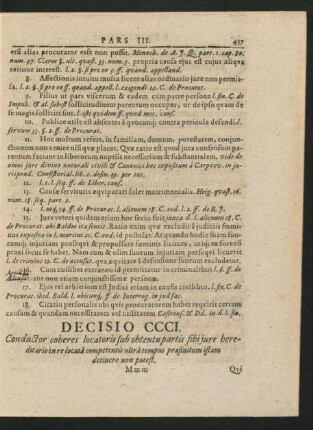 PARS III. 457
esse alias procurator esse non possit. Menoch. de A. J. Q. part. 1. cap. 80.
num. 97. Clarus §. ult. quæst. 35. num. 7. propria causa ejus est cujus aliqua
ratione interest. l. 2. §. si pro eo 5. ff. quand. appelland.
8. Affectionis intuitu multa licent alias ordinario jure non permis-
sa. l. 2. §. si pro eo ff. quand. appell. l. exigendi 12. C. de Procurat.
9. Filius ut pars viscerum & eadem cum patre persona l. fin. C. de
Impub. & al. subst. sollicitudinem parentum occupat, ut de ipso quam de
se magis solliciti sint. l. isti quidem ff. quod met. causf.
10. Publicè utile est absentes à quocunq; contra pericula defendi l.
servum 33. §. 2. ff. de Procurat.
11. Hoc multum refert, in familiam, domum, potestatem, conjun-
ctionem non eniteenliis quæ placet. Quæ ratio est quod jura consensum pa-
rentum faciant in liberorum nuptiis necessarium & substantialem. vide de
jure omni­no naturali civili & Canonici hæc expositam à Carpzov. in ju-
risprud. Consistorial. lib. 2. defin. 39. per tot.
12. l. 1. l. seq. ff. de Liber. causf.
13. Causa servitutis æquiparatur solet matrimonialis. Heig. quæst. 16.
num. 18. seq. part. 2.
14. l. neq. 74. ff. de Procurat. l. alienum 18. C. eod. l. 2. ff. de R. J.
15. Jure veteri quidem etiam hoc secus fuit juxta d. l. alienum 18. C.
de Procurat. ubi Baldus ita sensit. Ratis enim quæ excludit à judiciis fœmi-
nas exposita in l. maritus 21. C. eod. id postulat. At quando hodie suam suo-
rumq; injuriam prosequi & propulsare fœminis licitum, utiq; & in eorum
prosecutione secus se habet. Nam cum & olim suorum injuriam persequi liceret
l. de crimine 12. C. de accusat. quæ æquitate & defensione suorum excludunt.
16. Cum cuilibet extraneo id permittatur in criminalibus l. 6. ff. de
Appell. non etiam conjunctissimæ personæ.
17. Ejus rei arbitrium est Judici etiam in causa civilibus. l. fin. C. de
Procurat. ibid. Bald. l. ubicunq; ff. de Interrog. in jud. fac.
18. Citatio personalis ubi quis procuratorem habet requirit certam
causam & quandam necessitatem vel utilitatem Castrens. & Dd. in d. l. fin.
DECISIO CCCI.
Conductor coheres locatoris sub obtentu partis sibi jure here-
ditario in re locatâ competentis ultrà tempus præfinitum istam
detinere non potest.
Mmm Qvi